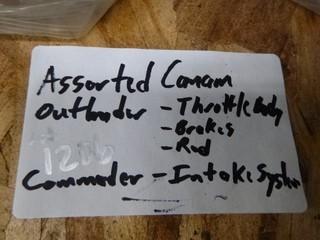 Assorted Canam
Outlander - Throttle Body
- Brakes
- Rod
1206
Commander - Intake System